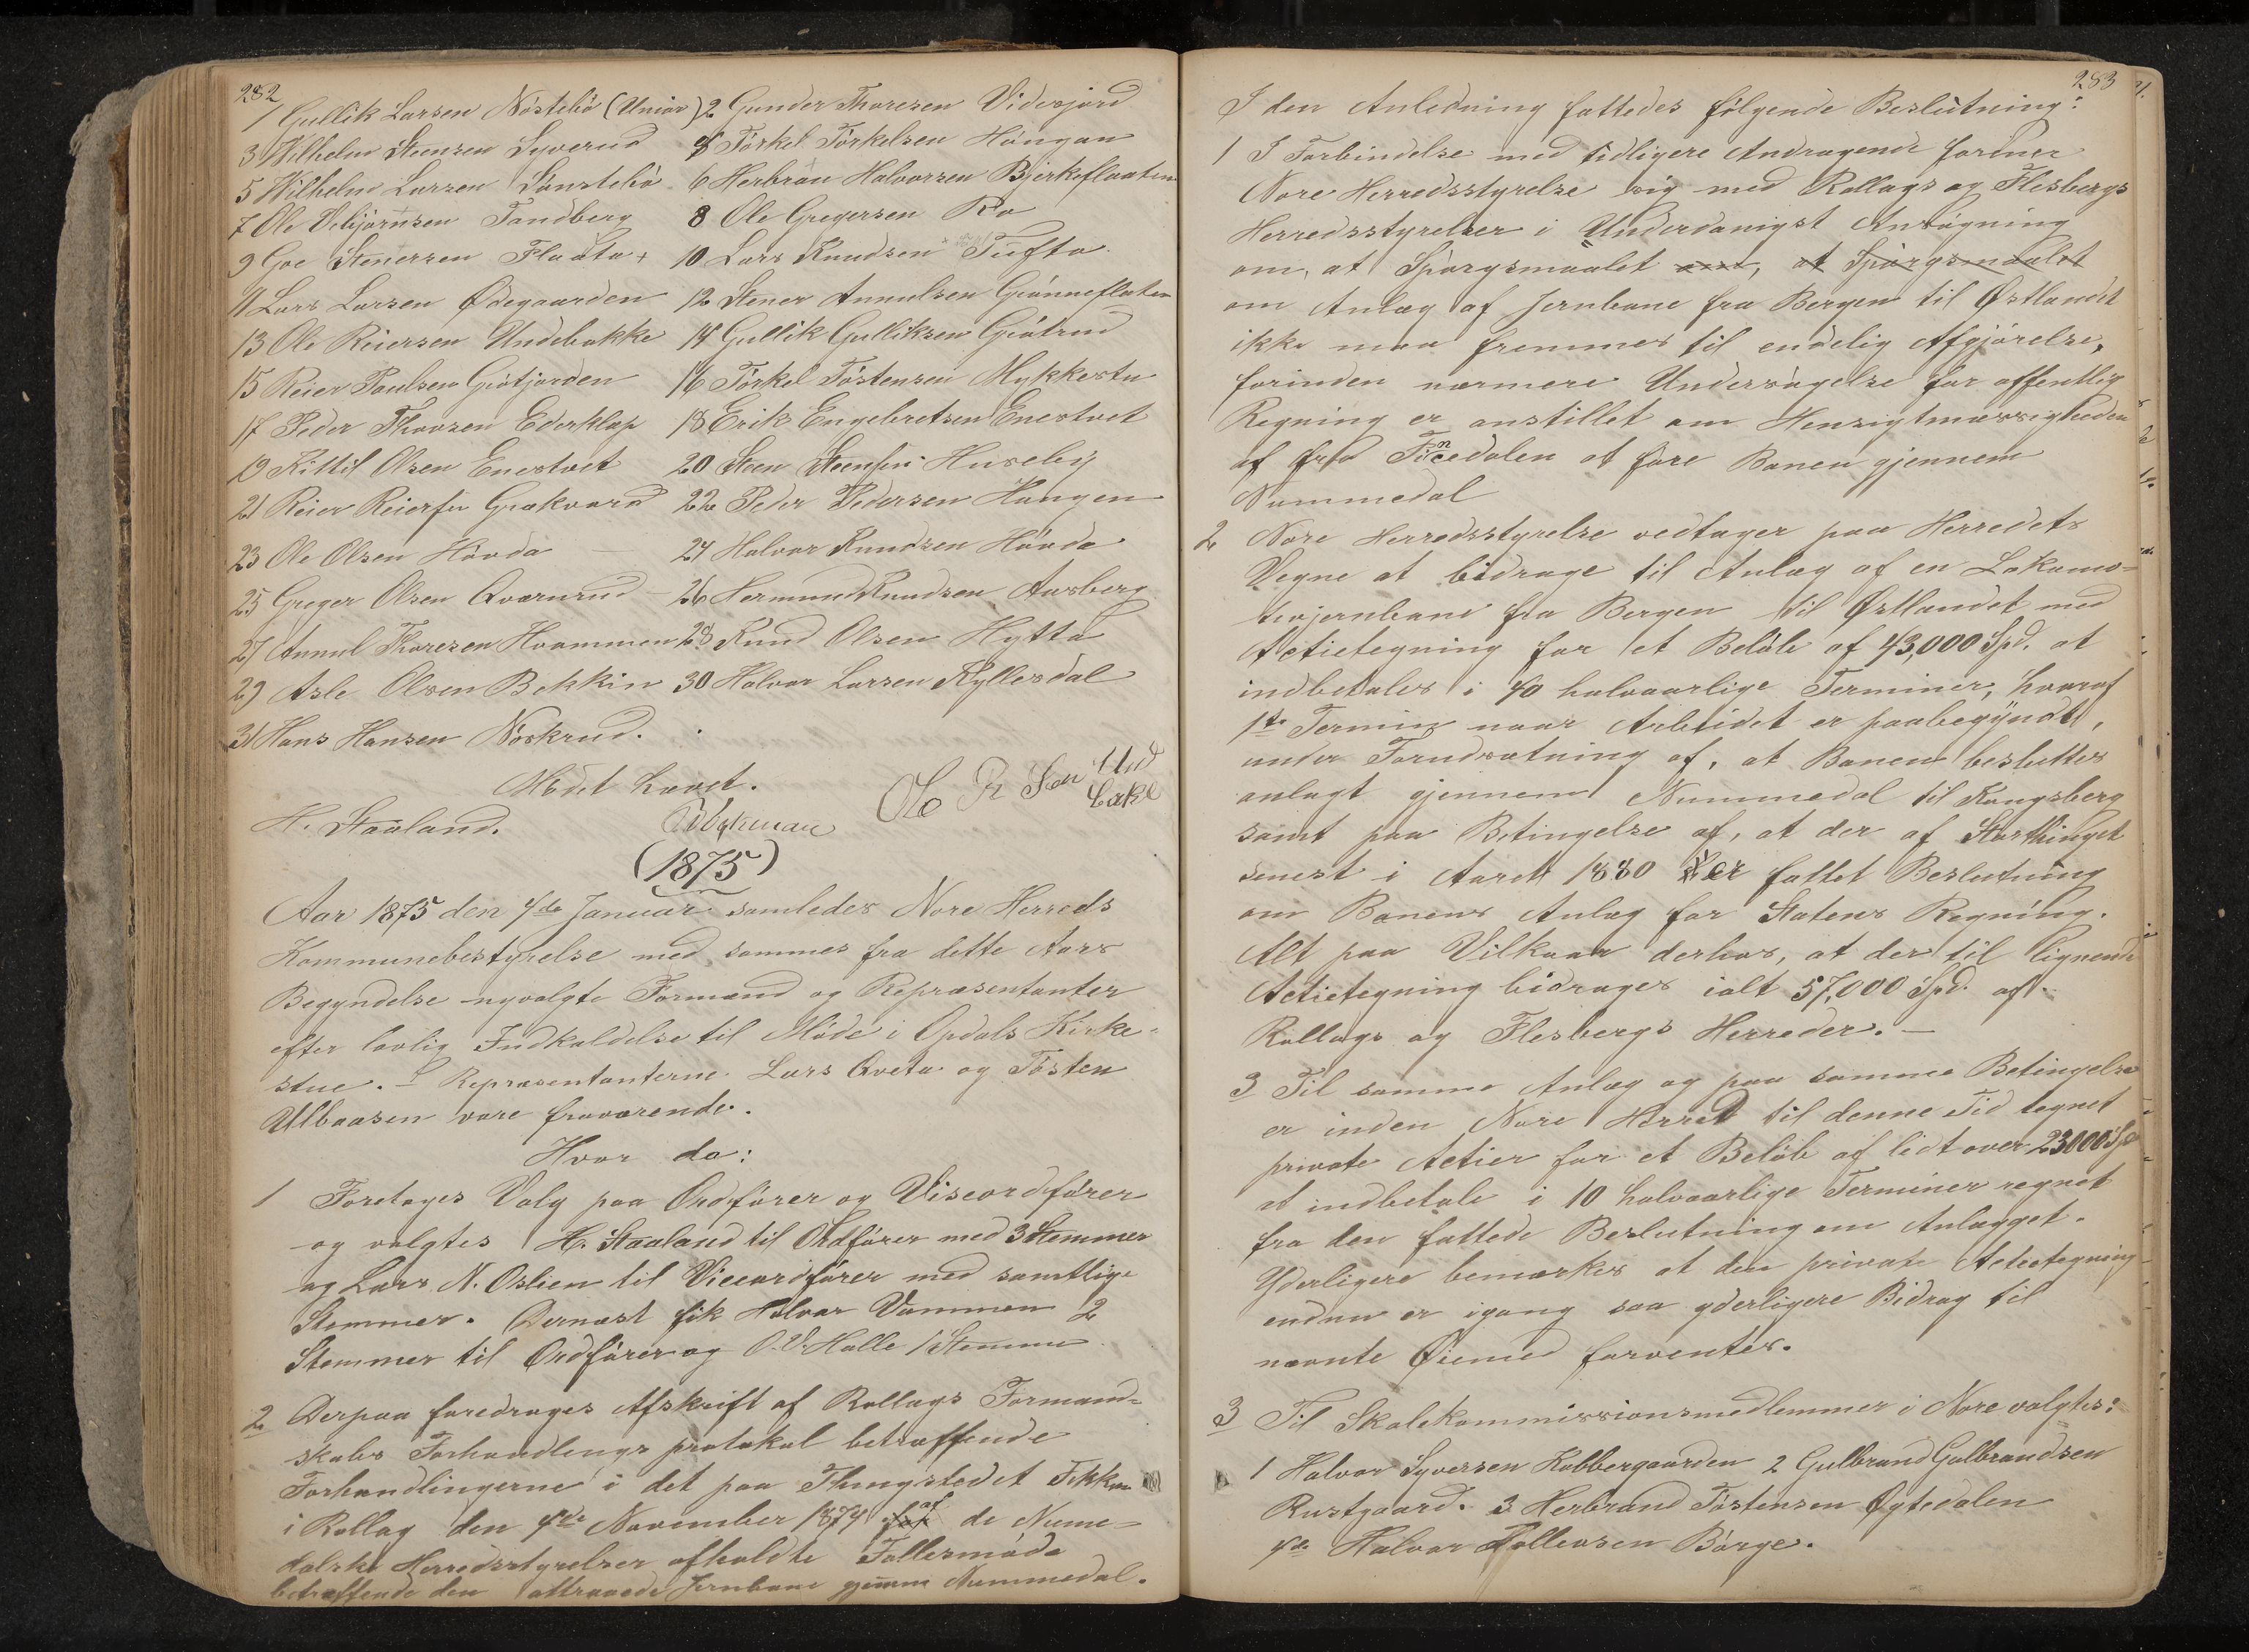 282
1 Gullik Larsen Nöstebö (Uniör) 2 Gunder Thoresen Videsjord
3 Wilhelm Steensen Syverud 4 Törkel Törkelsen Höngan
5 Wilhelm Larsen Sönstebö 6 Herbran Halvorsen Bjerkeflaaten
7 Ole Asbjörnsen Tandberg 8 Ole Gregersen Ro
9 Goe Stenersen Flaata 10 Lars Knudsen Tufto
11 Lars Larsen Ødegaarden 12 Stener Annulsen Grönneflaten
13 Ole Reiersen Undebakke 14 Gullik Gulliksen Grötrud
15 Reier Paulsen Grötjorden 16 Törkel Töstensen Mykkestu
17 Peder Thovsen Ederklep 18 Erik Engebretsen Enestvet
19 Kittil Olsen Enestvet 20 Steen Steensen Huseby
21 Reier Reiersen Grækvard 22 Peder Pedersen Haugen
23 Ole Olsen Hövda 24 Halvor Knudsen Hövda
25 Greger Olsen Qværnrud 26 Hermund Knudsen Aasberg
27 Annul Thoresen Hvammen 28 Knud Olsen Hytta
29 Asle Olsen Bekkin 30 Halvor Larsen Kyllesdal
31 Hans Hansen Nöskrud.
Mödet hævet.
H. Staaland. Ole R Sen Und
bake
(1875)
Aar 1875 den 4de Januar samledes Nore Herreds
Kommunebestyrelse med sammes fra dette Aars
Begyndelse nyvalgte Formænd og Repræsentanter
efter lovlig Indkaldelse til Möde i Opdals Kirke-
stue. Repræsentanterne Lars Qveta og Tösten
Ulbaasen vare fraværende.
Hvor da:
1 Foretoges Valg paa Ordförer og Viseordförer
og valgtes H. Staaland til Ordförer med 3 Stemmer
og Lars N. Oslien til Viceordförer med samtlige
Stemmer. Dernæst fik Halvor Vammen 2
Stemmer til Ordförer og O. O. Halle 1 Stemme
2 Derpaa foredroges Afskrift af Rollags Formand-
skabs Forhandlings protokol betræffende
Forhandlingerne i det paa Thingstedet Fekkan
i Rollag den 4de November 1874 af de Nume-
dalske Herredsstyrelser afholdte Fællesmöde
betræffende den attraaede Jernbane gjennem Nummedal.
283
I den Anledning fattedes fölgende Beslutning:
1 I Forbindelse med tidligere Andragende forener
Nore Herredsstyrelse sig med Rollags og Flesbergs
Herredsstyrelser i Underdanigst Ansögning
om, at Spörgsmaalet om, at Spörgsmaalet
om Anlæg af Jernbane fra Bergen til Østlandet
ikke maa fremmes til endelig Afgjörelse,
forinden nærmere Undersögelse for offentlig
Regning er anstillet om Hensigtmæssigheden
af fra Finedalen at före Banen gjennem
Nummedal
2 Nore Herredsstyrelse vedtager paa Herredets
Vegne at bidrage til Anlæg af en Lokomo-
tivjernbane fra Bergen til Østlandet med
Actietegning for et Belöb af 43,000 Spd. at
indbetales i 40 halvaarlige Terminer, hvoraf
1ste Termin naar Arbeidet er paabegyndt,
under Forudsætning af, at Banen besluttes
anlagt gjennem Nummedal til Kongsberg
samt paa Betingelse af, at der af Storthinget
senest i Aaret 1880 er fattet Beslutning
om Banens Anlæg for Statens Regning.
Alt paa Vilkaar derhos, at der til lignende
Actietegning bidrages ialt 57,000 Spd. af
Rollags og Flesbergs Herreder. —
3 Til samme Anlæg og paa samme Betingelse
er inden Nore Herred til denne Tid tegnet
private Actier for et Belöb af lidt over 23000 Spd
at indbetale i 10 halvaarlige Terminer regnet
fra den fattede Beslutning om Anlægget.
Yderligere bemærkes at den private Actietegning
endnu er igang saa yderligere Bidrag til
nævnte Øiemed forventes.
3 Til Skolekommissionsmedlemmer i Nore valgtes:
1 Halvor Syversen Kobbergaarden 2 Gulbrand Gulbrandsen
Rustgaard. 3 Herbrand Töstensen Øytedalen
4de Halvor Tollevsen Börge.